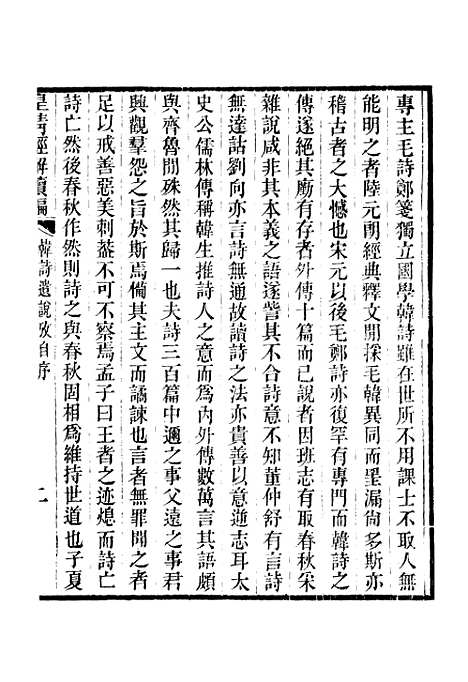 專主毛詩鄭箋獨立國學韓詩雖在世所不用課士不取人無
能明之者陸元朗經典釋文閒採毛韓異同而罣漏尙多斯亦
稽古者之大憾也宋元以後毛鄭詩亦復罕有專門而韓詩之
傳遂絕其廝有存者外傳十篇而已說者因班志有取春秋采
雜說咸非其本義之語遂訾其不合詩意不知董仲舒有言詩
無達詁劉向亦言詩無通故讀詩之法亦貴善以意逆志耳太
史公儒林傳稱韓生推詩人之意而爲內外傳數萬言其語頗
與齊魯閒殊然其歸一也夫詩三百篇中邇之事父遠之事君
興觀羣怨之旨於斯焉備其主文而譎諫也言者無罪聞之者
足以戒善惡美刺葢不可不察焉孟子曰王者之迹熄而詩亡
詩亡然後春秋作然則詩之與春秋固相爲維持世道也子夏
皇淸經解續編
韓詩遺說攷自序
二